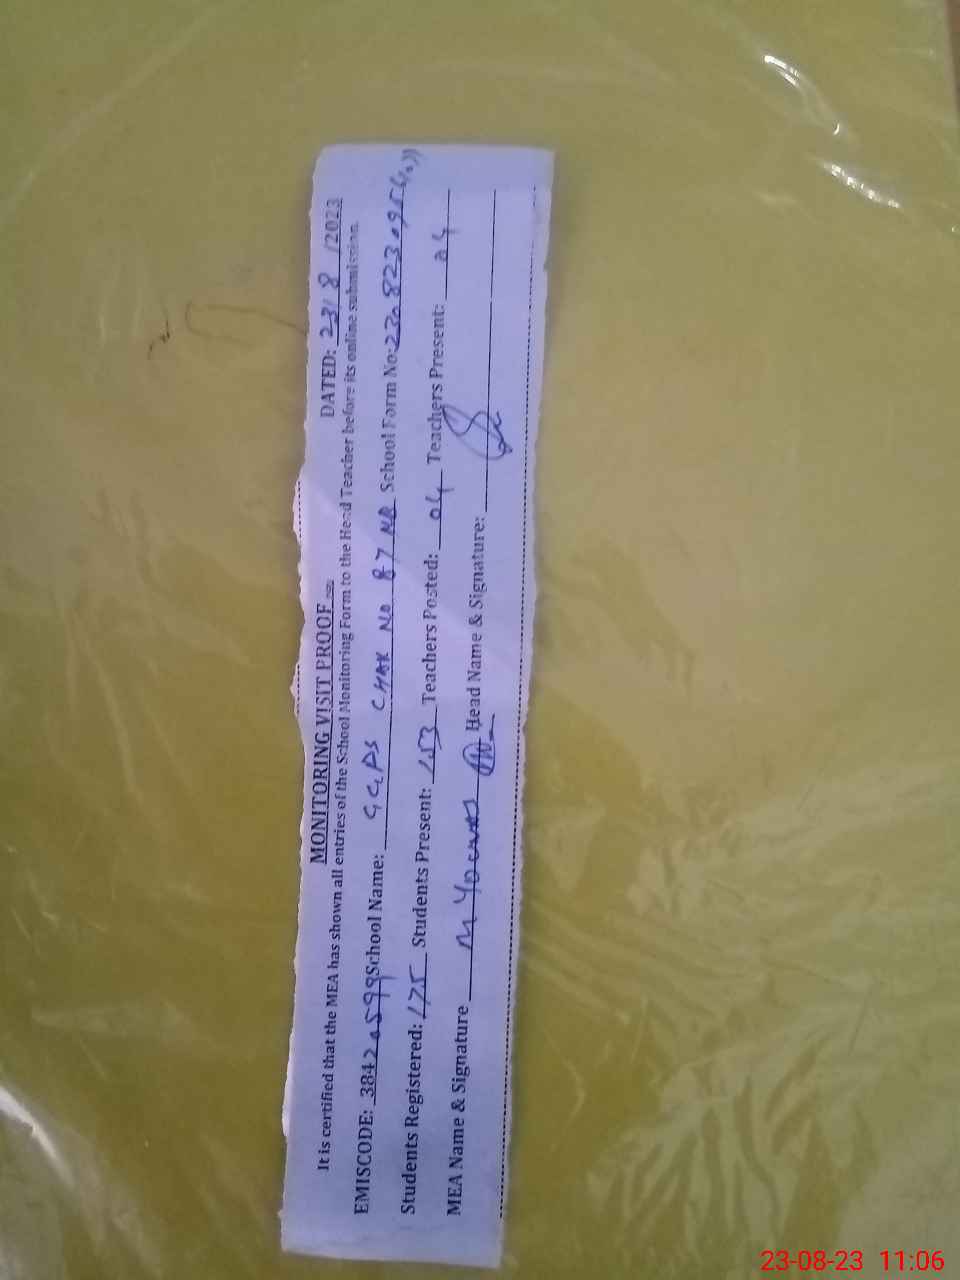 MONITORING VISIT PROOF DATED: 23/ 8 /2023
It is certified that the MEA has shown all entries of the School Monitoring Form to the Head Teacher before its online submission.
EMISCODE: 38420599 School Name: GGPS CHAK NO 87 NB School Form No:
Students Registered: 175 Students Present: 153 Teachers Posted: 04 Teachers Present: 04
MEA Name & Signature M Younas Head Name & Signature:
23-08-23 11:06